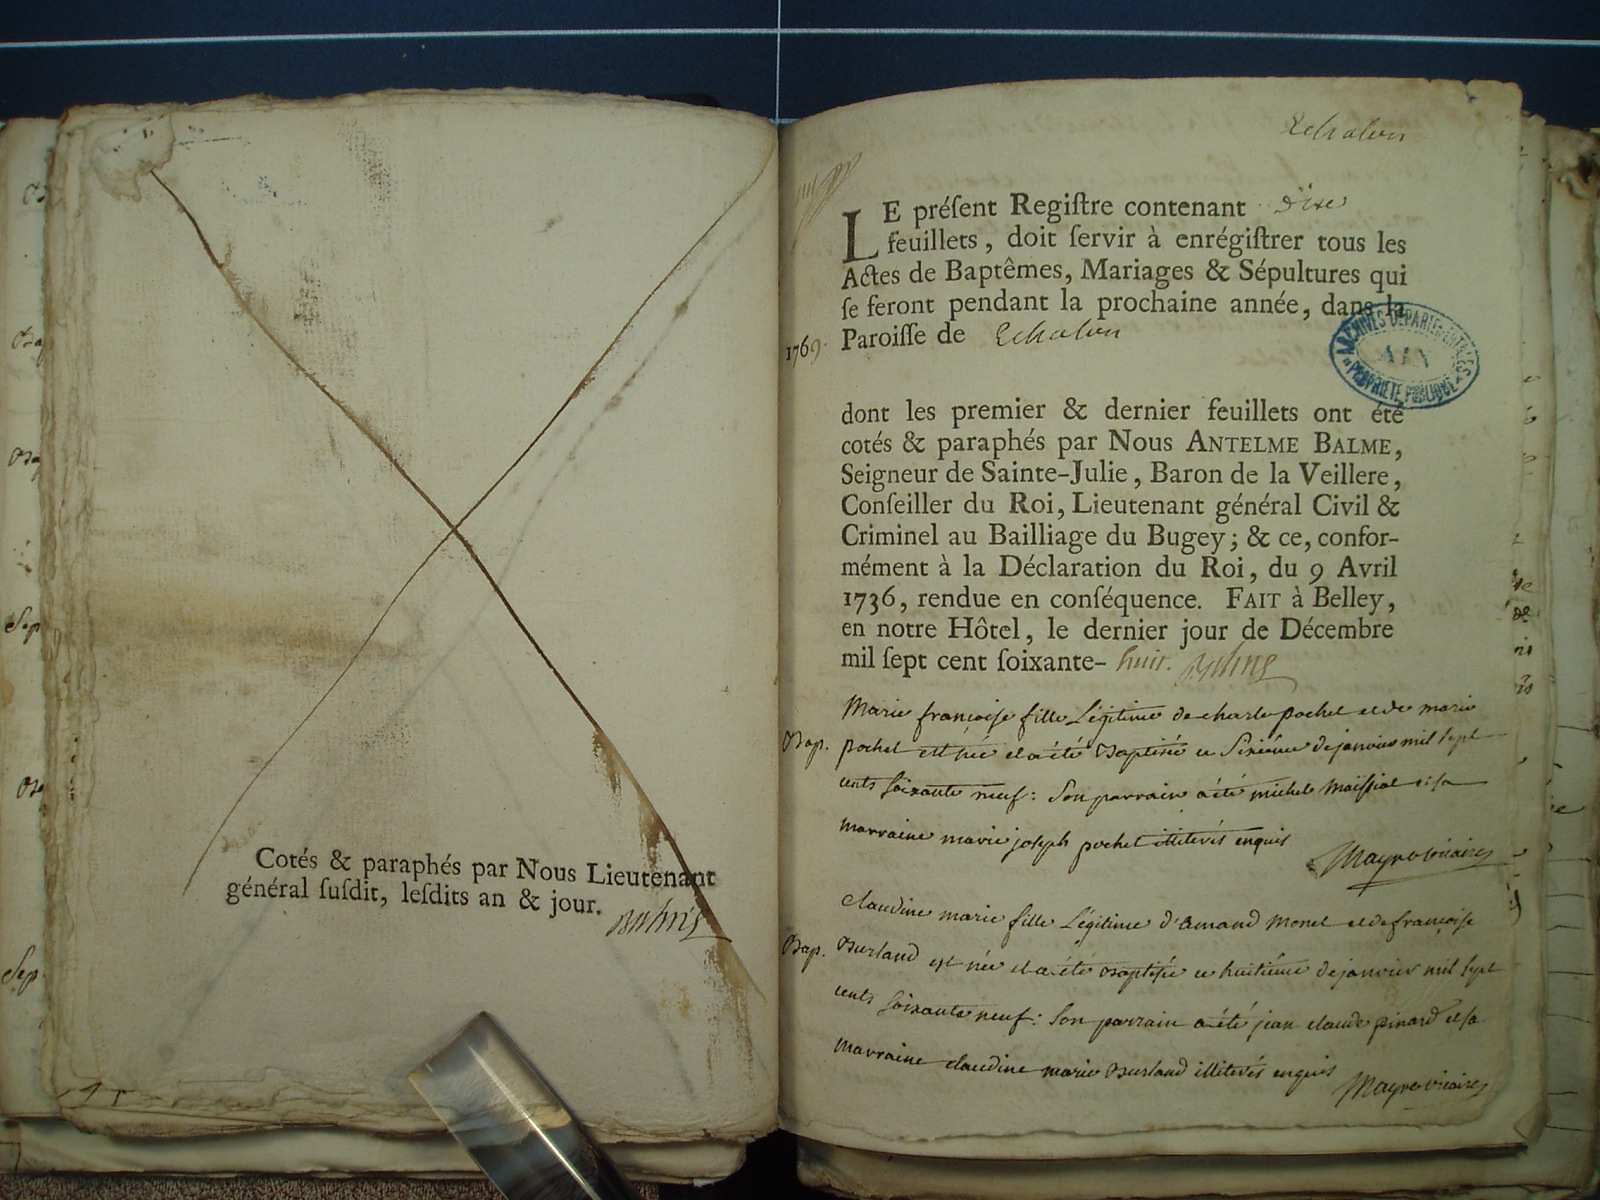 Cotés & paraphés par Nous Lieutenant
général ſuſdit, leſdits an & jour.
Echalon
LE préſent Regiſtre contenant dixe
feuillets, doit ſervir à enrégiſtrer tous les
Actes de Baptêmes, Mariages & Sépultures qui
ſe feront pendant la prochaine année, dans la
1769. Paroiſſe de Echalon
ARCHIVES DÉPARTEMENTALES
AIN
PROPRIÉTÉ PUBLIQUE
dont les premier & dernier feuillets ont été
cotés & paraphés par Nous ANTELME BALME,
Seigneur de Sainte-Julie, Baron de la Veillere,
Conſeiller du Roi, Lieutenant général Civil &
Criminel au Bailliage du Bugey; & ce, confor-
mément à la Déclaration du Roi, du 9 Avril
1736, rendue en conſéquence. FAIT à Belley,
en notre Hôtel, le dernier jour de Décembre
mil ſept cent ſoixante-huit.
Marie françoise fille Légitime de charle pochet et de marie
Bap. pochet est née et a été Baptisée ce Sixiéme de janvier mil sept
cents soixante neuf: Son parrain a été michel Maissiat et sa
marraine marie joseph pochet illiterés enquis
Mayno vicaire
claudine marie fille Légitime d'amand Monet et de françoise
Bap. Burland est née et a été Baptisée ce huitiéme de janvier mil sept
cents soixante neuf: Son parrain a été jean claude pinard et sa
marraine claudine marie Burland illiterés enquis
Mayno vicaire